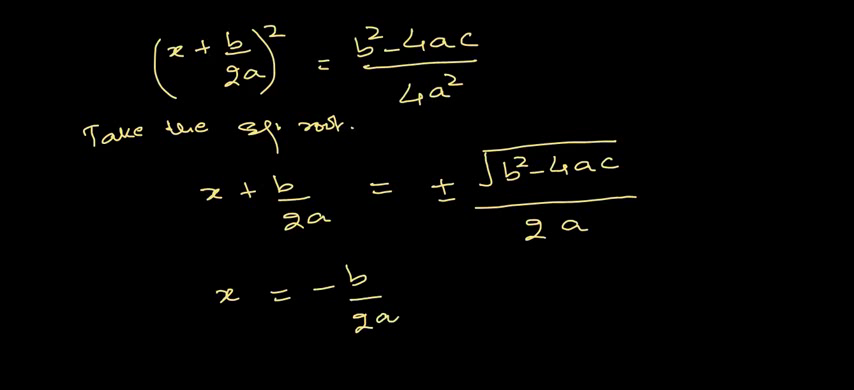 (x + b/2a)² = b²-4ac/4a²
Take the sq. root.
x + b/2a = ± √b²-4ac/2a
x = - b/2a